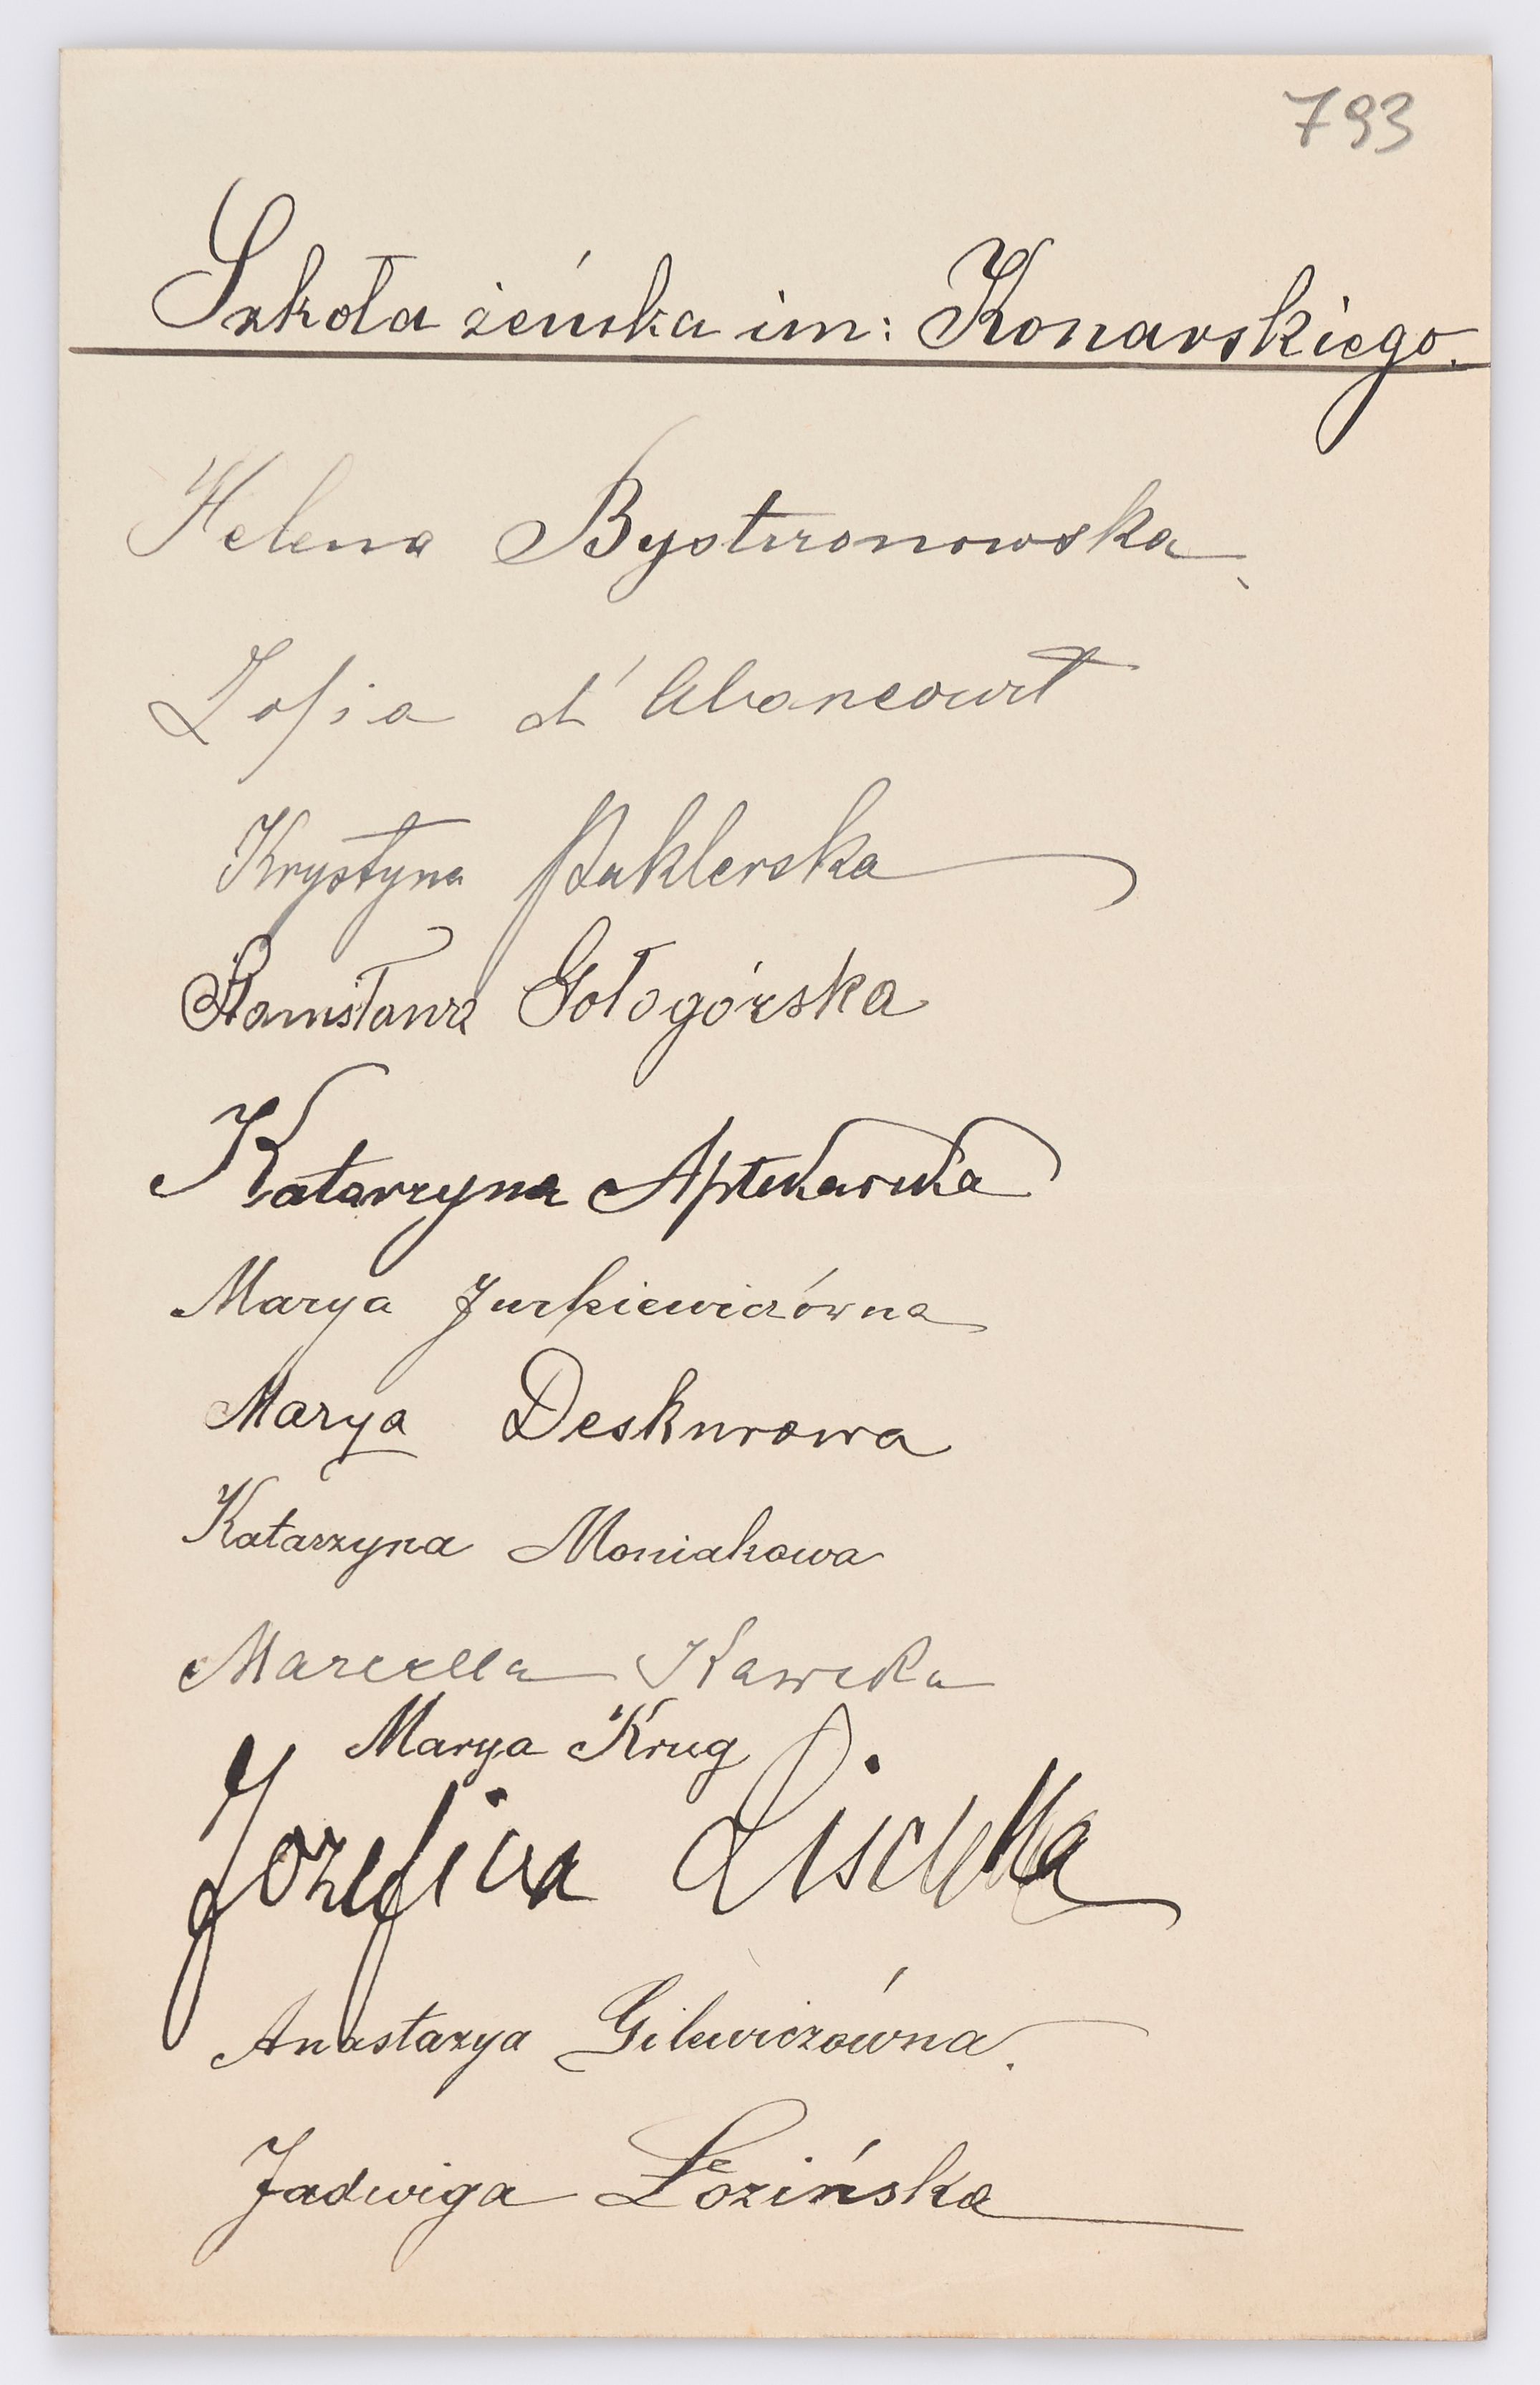 793
Szkoła żeńska im: Konarskiego.
Helena Bystronowska
Zofia d'Abancourt
Krystyna Puklerska
Stanisława Gołogórska
Katarzyna Aptekarska
Marya Jurkiewiczówna
Marya Deskurowa
Katarzyna Moniakowa
Marcella Kawecka
Marya Krug
Józefina
Anastazya Gilewiczówna.
Jadwiga Łozińska